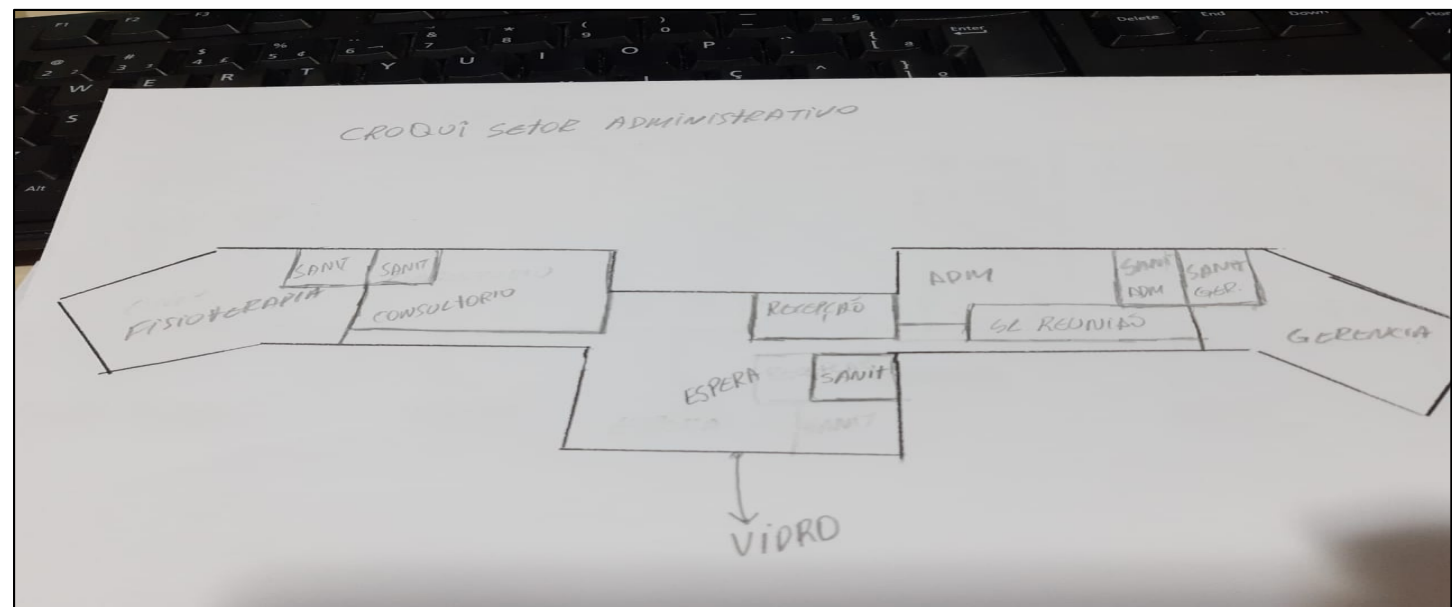 CROQUI SETOR ADMINISTRATIVO
SANIT
SANIT
FISIOTERAPIA
CONSULTORIO
RECEPÇÃO
ADM
SANIT
ADM
SANIT
GER.
SL REUNIÃO
GERENCIA
ESPERA
SANIT
VIDRO